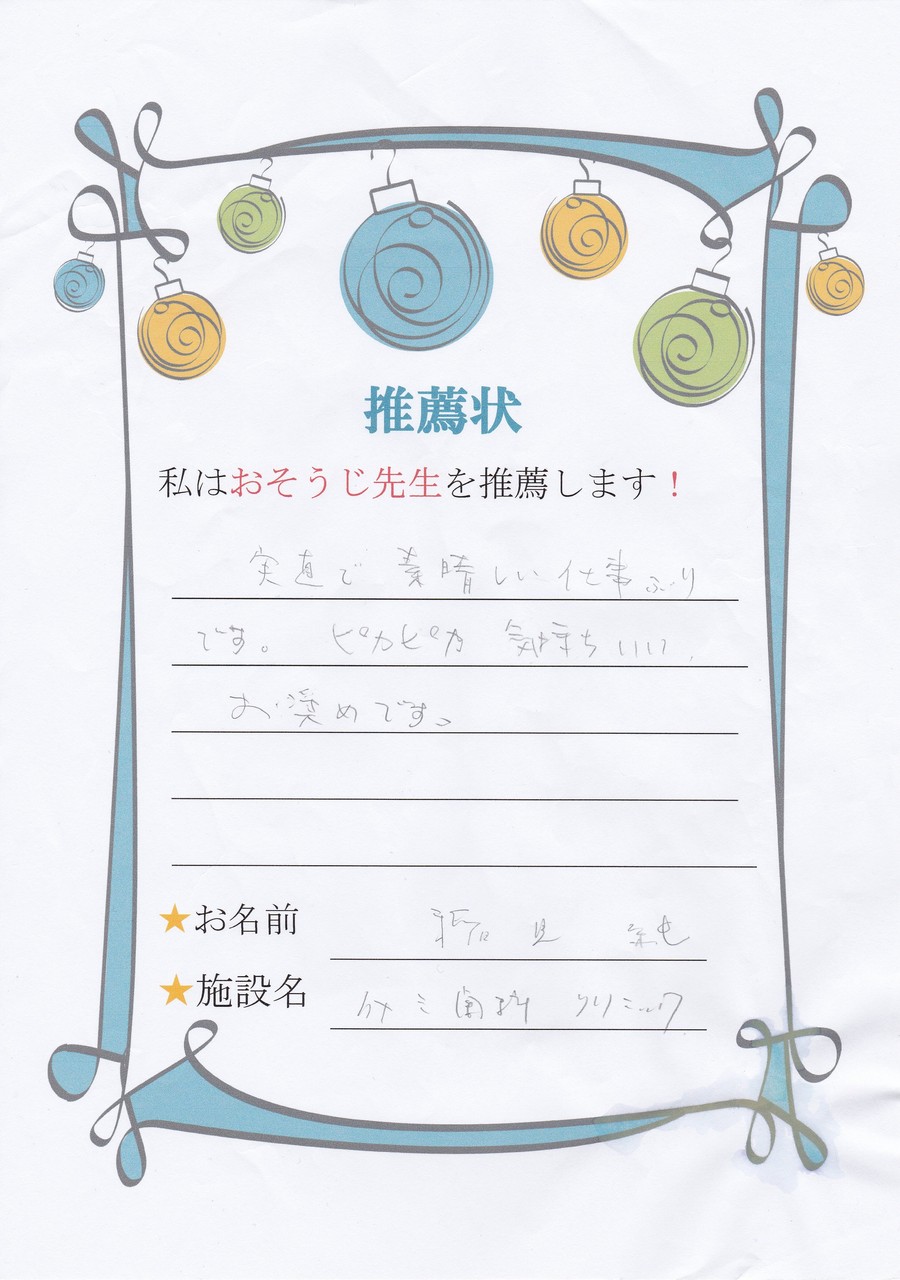 推薦状
私はおそうじ先生を推薦します！
実直で 素晴しい 仕事ぶり
です。 ピカピカ 気持ちいい。
お奨めです。
★お名前 見 純
★施設名 歯科 クリニック